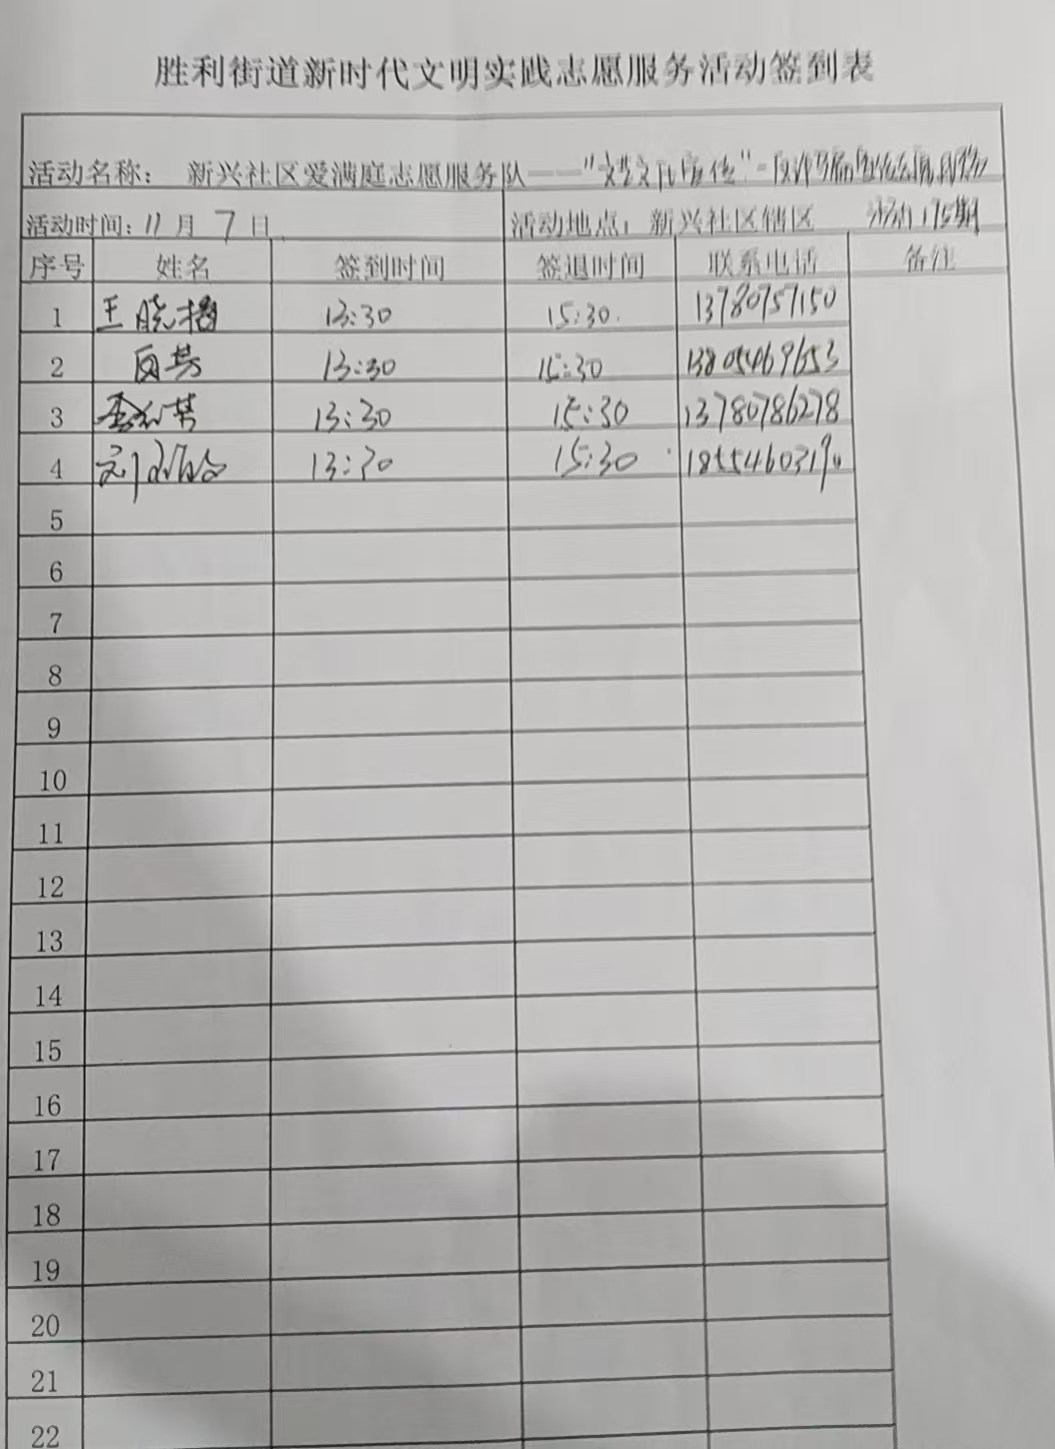 胜利街道新时代文明实践志愿服务活动签到表
活动名称： 新兴社区爱满庭志愿服务队——"
活动时间：11月 7日 活动地点：新兴社区辖区
序号 姓名 签到时间 签退时间 联系电话 备注
1 王晓 13:30 15:30 13780757150
2 13:30 15:30 13805469653
3 13:30 15:30 13780786278
4 刘 13:30 15:30
5
6
7
8
9
10
11
12
13
14
15
16
17
18
19
20
21
22